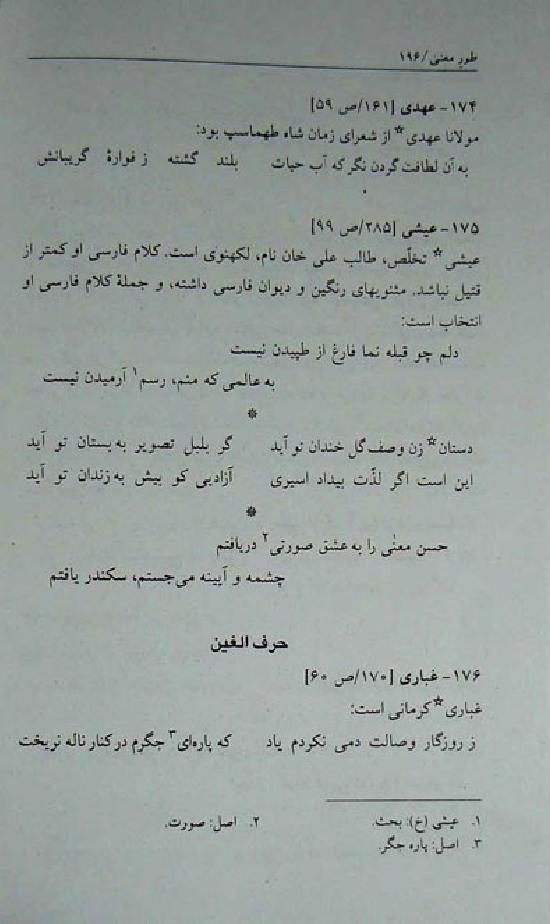 طور معنی / ۱۹۶
۱۷۴- عهدی [۱۶۱/ص ۵۹]
مولانا عهدی* از شعرای زمان شاه طهماسپ بود:
به آن لطافت گردن نگر که آب حیات بلند گشته ز فوارهٔ گریبانش
۱۷۵- عیشی [۲۸۵/ص ۹۹]
عیشی* تخلّص، طالب علی خان نام، لکهنوی است. کلام فارسی او کمتر از
قتیل نباشد. مثنویهای رنگین و دیوان فارسی داشته، و جملهٔ کلام فارسی او
انتخاب است:
دلم چو قبله نما فارغ از طپیدن نیست
به عالمی که منم، رسم۱ آرمیدن نیست
*
دستان* زن وصف گل خندان تو آید گر بلبل تصویر به بستان تو آید
این است اگر لذّت بیداد اسیری آزادیی کو بیش به زندان تو آید
*
حسن معنٰی را به عشق صورتی۲ دریافتم
چشمه و آیینه می‌جستم، سکندر یافتم
حرف الغین
۱۷۶- غباری [۱۷۰/ص ۶۰]
غباری* کرمانی است:
ز روزگار وصالت دمی نکردم یاد که پاره‌ای۳ جگرم در کنار ناله نریخت
۱. عیشی (خ): بحث. ۲. اصل: صورت.
۳. اصل: پاره جگر.